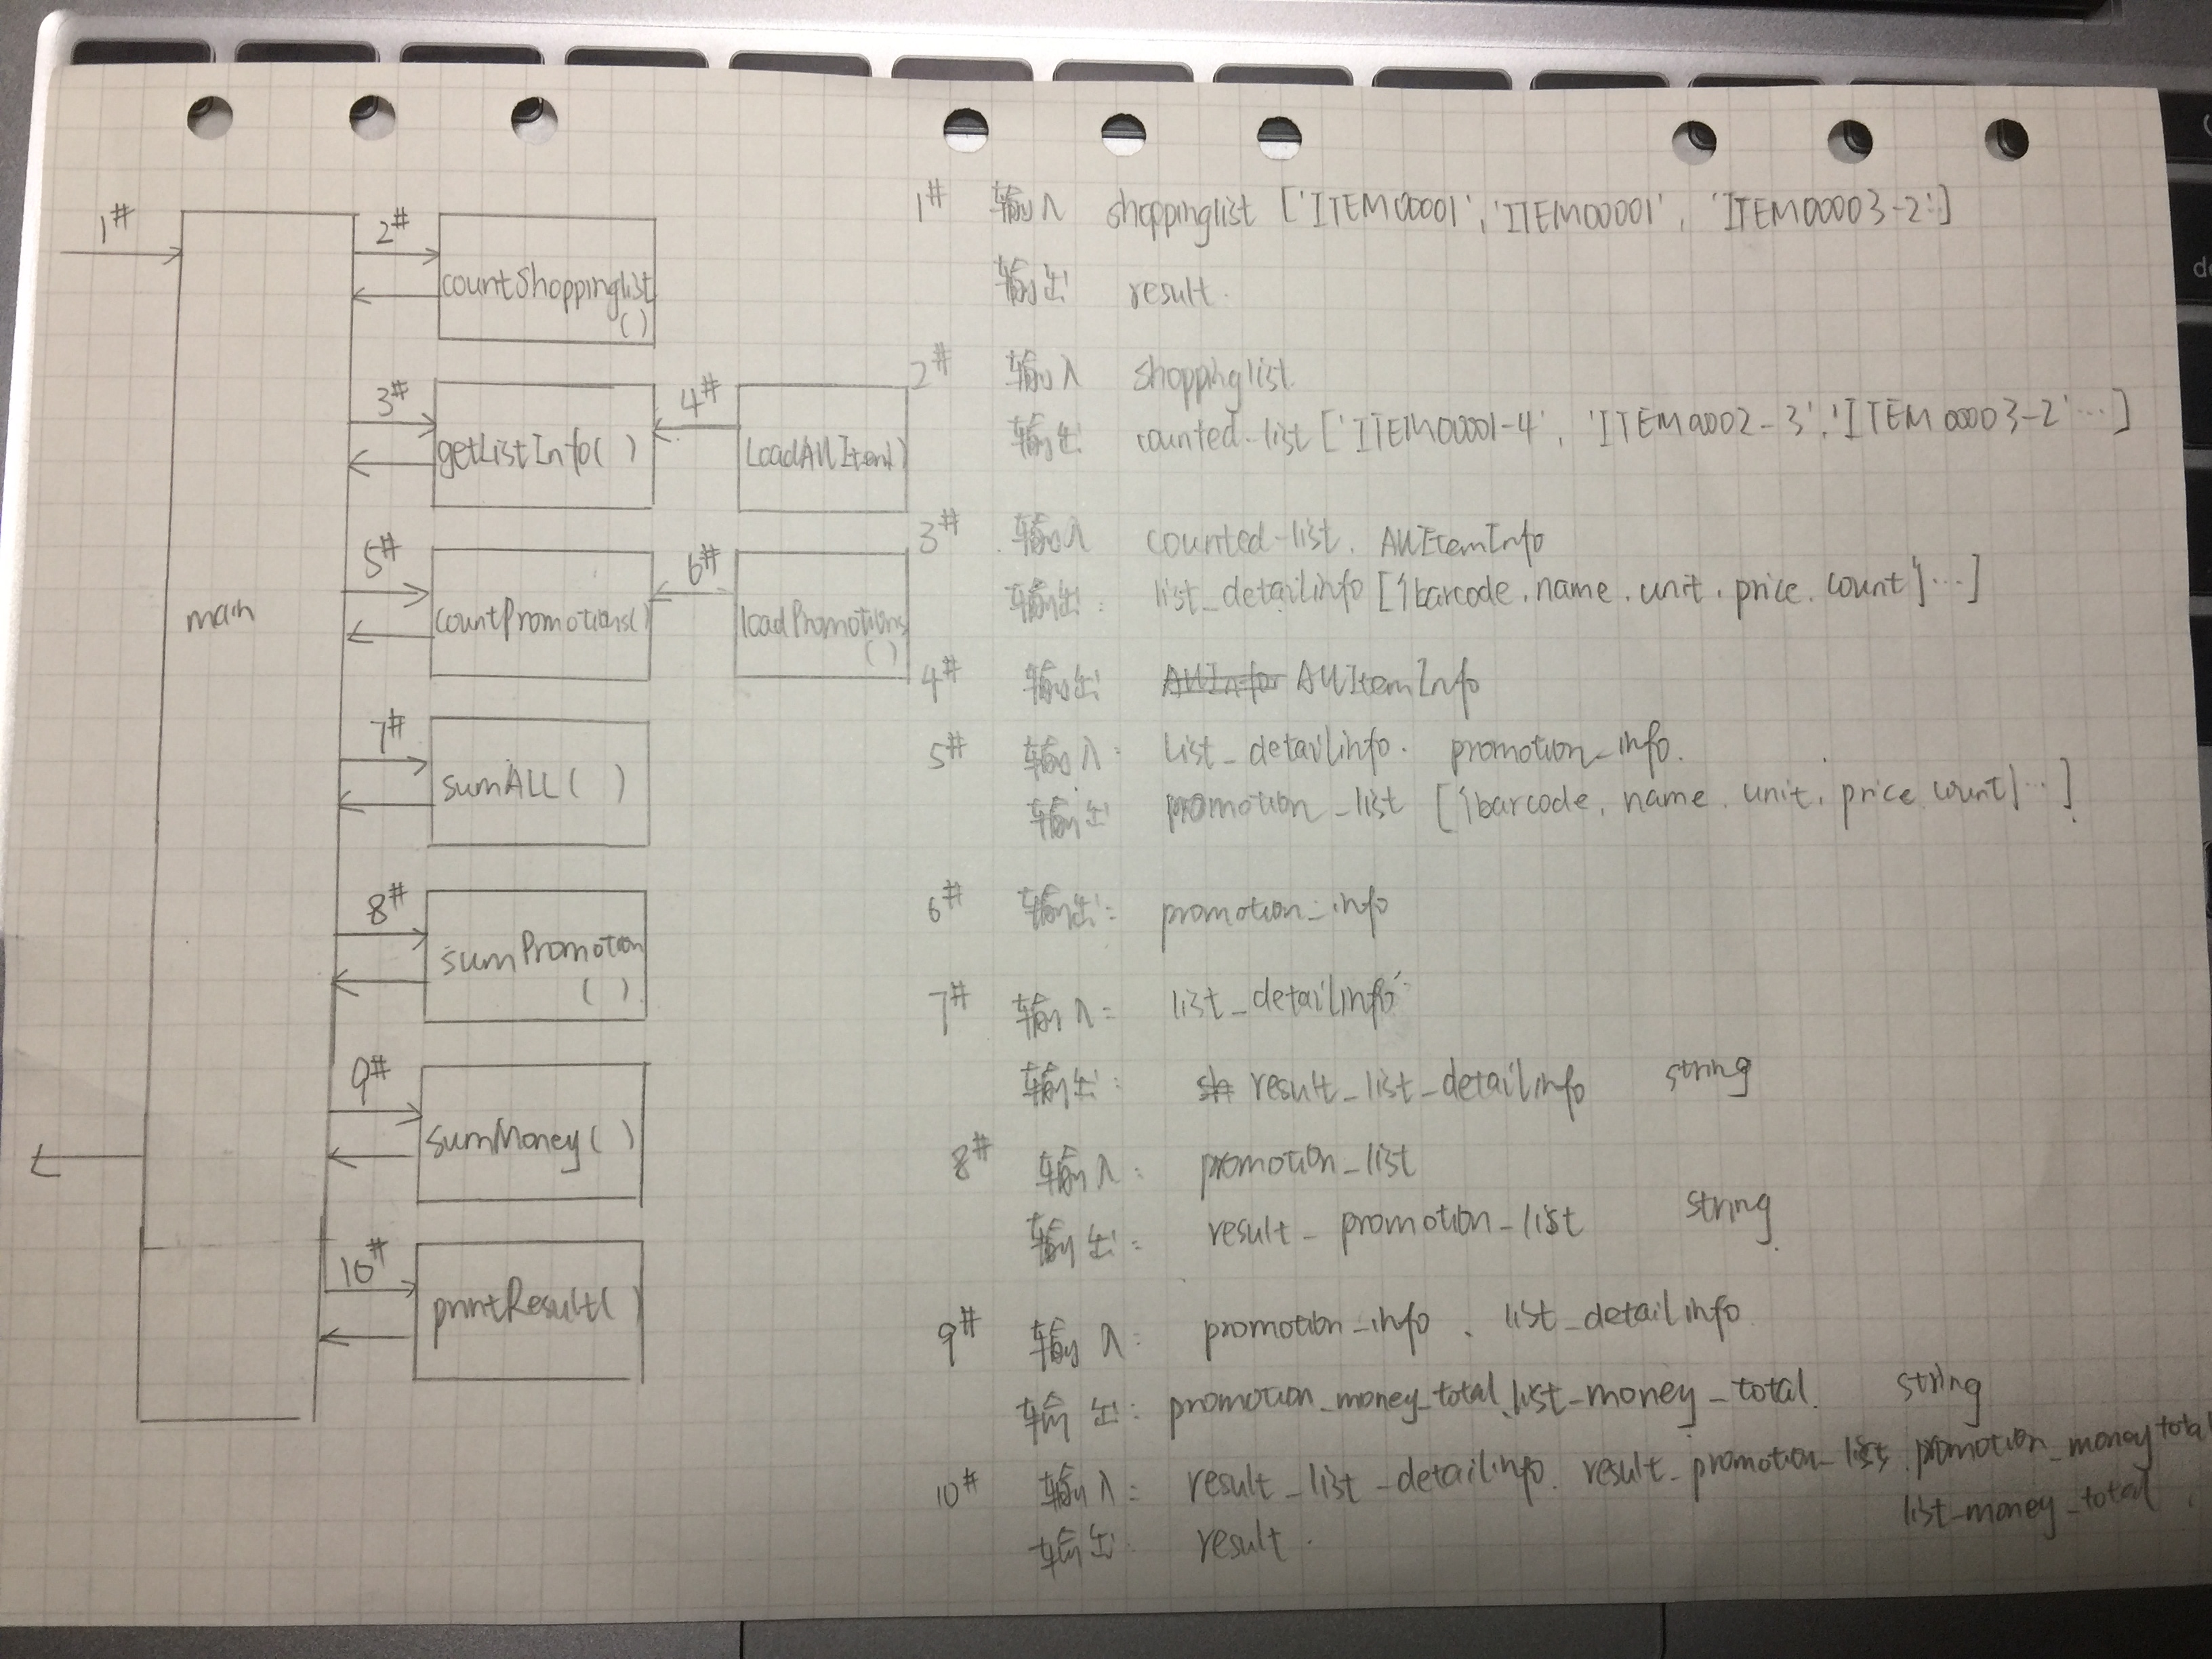 1#
main
2#
countShoppinglist
()
3#
getListInfo( )
4#
LoadAllItem()
5#
countPromotions()
6#
loadPromotions
()
7#
sumALL( )
8#
sumPromotion
( )
9#
sumMoney( )
10#
printResult( )
1# 输入 shoppinglist ['ITEM00001', 'ITEM00001', 'ITEM00003-2']
输出 result.
2# 输入 shoppinglist
输出 counted-list ['ITEM00001-4', 'ITEM0002-3', 'ITEM00003-2' ...]
3# 输入 counted-list. AllItemInfo
输出: list_detailinfo [{barcode, name, unit, price, count} ...]
4# 输出 AllItemInfo
5# 输入: list_detailinfo. promotion_info.
输出 promotion_list [{barcode, name, unit, price count} ...]
6# 输出: promotion_info
7# 输入: list_detailinfo
输出: result_list_detailinfo string
8# 输入: promotion_list
输出: result_promotion_list string
9# 输入: promotion_info、list_detailinfo
输出: promotion_money_total、list_money_total. string
10# 输入: result_list_detailinfo. result_promotion_list. promotion_money total
list_money_total
输出: result.